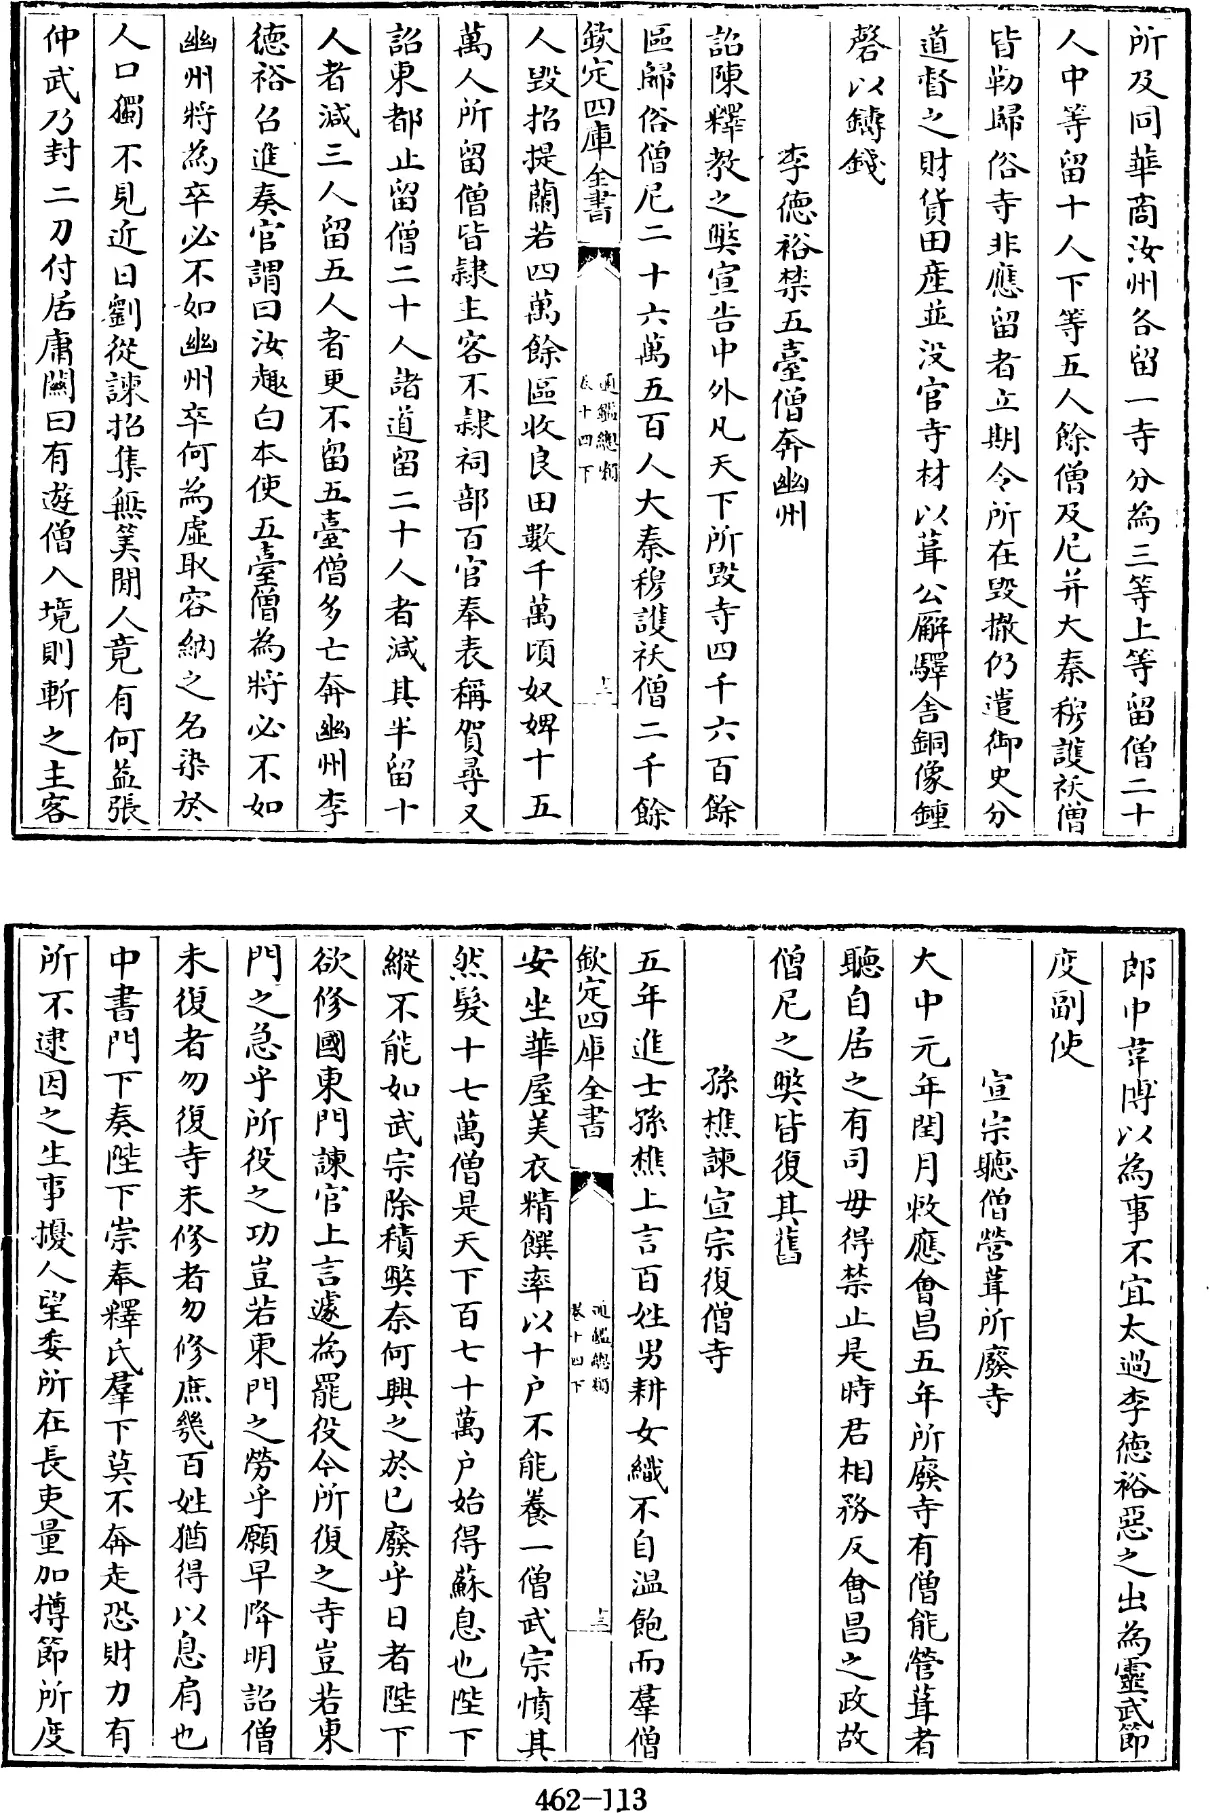 所及同華商汝州各留一寺分為三等上等留僧二十
人中等留十人下等五人餘僧及尼并大秦穆護祅僧
皆勒歸俗寺非應留者立期令所在毀撤仍遣御史分
道督之財貨田産並没官寺材以葺公廨驛舍銅像鍾
磬以鑄錢
李德裕禁五臺僧奔幽州
詔陳釋教之弊宣告中外凡天下所毀寺四千六百餘
區歸俗僧尼二十六萬五百人大秦穆護祅僧二千餘
欽定四庫全書
通鑑總類
卷十四下
十二
人毀招提蘭若四萬餘區收良田數千萬頃奴婢十五
萬人所留僧皆隷主客不隷祠部百官奉表稱賀尋又
詔東都止留僧二十人諸道留二十人者減其半留十
人者減三人留五人者更不留五臺僧多亡奔幽州李
德裕召進奏官謂曰汝趣白本使五臺僧為將必不如
幽州將為卒必不如幽州卒何為虛取容納之名染於
人口獨不見近日劉從諫招集無筭閒人竟有何益張
仲武乃封二刀付居庸關曰有遊僧入境則斬之主客
郎中韋博以為事不宜太過李德裕惡之出為靈武節
度副使
宣宗聽僧營葺所廢寺
大中元年閏月敕應會昌五年所廢寺有僧能營葺者
聽自居之有司毋得禁止是時君相務反會昌之政故
僧尼之弊皆復其舊
孫樵諫宣宗復僧寺
五年進士孫樵上言百姓男耕女織不自温飽而羣僧
欽定四庫全書
通鑑總類
卷十四下
十三
安坐華屋美衣精饌率以十户不能養一僧武宗憤其
然髮十七萬僧是天下百七十萬户始得蘇息也陛下
縱不能如武宗除積弊奈何興之於已廢乎日者陛下
欲修國東門諫官上言遽為罷役今所復之寺豈若東
門之急乎所役之功豈若東門之勞乎願早降明詔僧
未復者勿復寺未修者勿修庶幾百姓猶得以息肩也
中書門下奏陛下崇奉釋氏羣下莫不奔走恐財力有
所不逮因之生事擾人望委所在長吏量加撙節所度
462-113